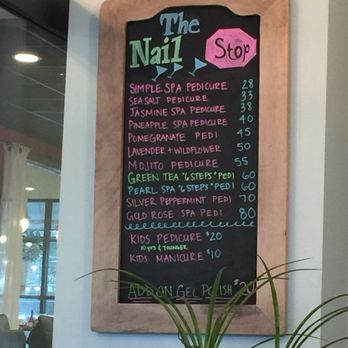 The
Nail Stop
SIMPLE SPA PEDICURE 28
SEA SALT PEDICURE 33
JASMINE SPA PEDICURE 38
PINEAPPLE SPA PEDICURE 40
POMEGRANATE PEDI 45
LAVENDER + WILDFLOWER 50
MOJITO PEDICURE 55
GREEN TEA "6 STEPS" PEDI 60
PEARL SPA "6 STEPS" PEDI 60
SILVER PEPPERMINT PEDI 70
GOLD ROSE SPA PEDI 80
KIDS PEDICURE $20
10 YRS & YOUNGER
KIDS MANICURE $10
ADD ON GEL POLISH $20